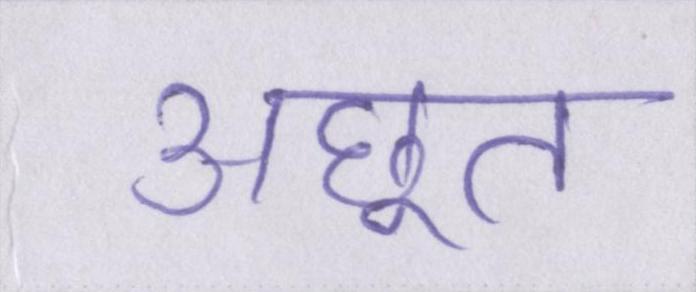 अछूत